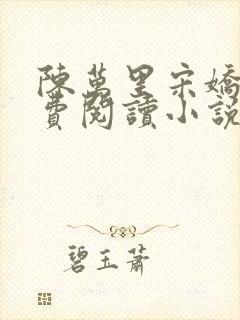 陳萬里宋嬌
費閱讀小說
碧玉蕭